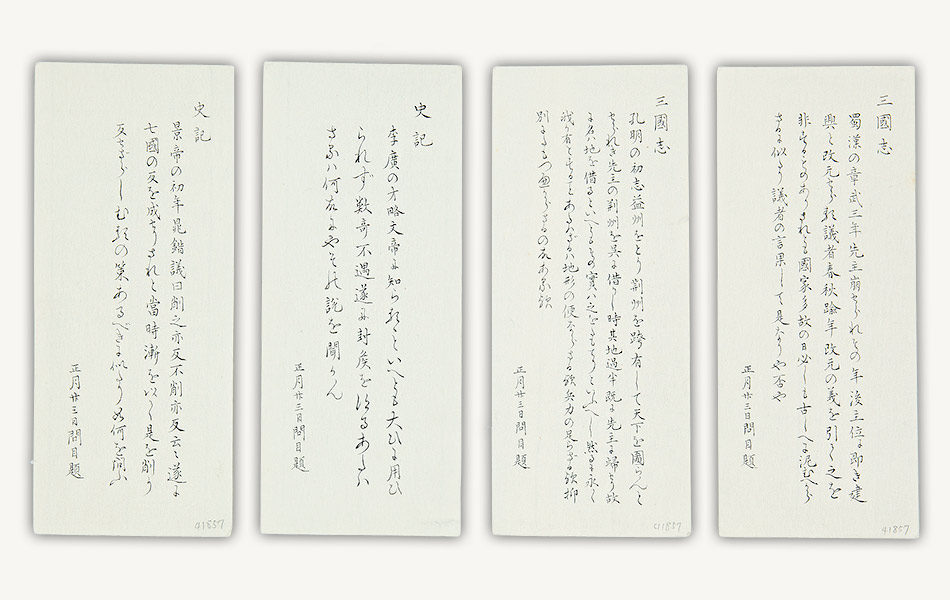 三國志
蜀漢の章武三年先主崩せられその年後主位に即き建
興と改元せられ議者春秋踰年改元の義を引く之を
非するものありされとも國家多故の日必しも古しへに泥むへから
さるに似たり議者の言果して是なりや否や
正月廿三日問目題
41857
三國志
孔明の初志益州をとり荊州を跨有して天下を圖らんと
せられき先主の荊州を呉に借し時其地過半既に先主に歸せり故
に名は地を借るといへともその實は之をもてりといふへし然るを永く
我か有とすることあたはさるは地形の便ならさる歟兵力の足らさる歟抑
別に
正月廿三日問目題
41857
史記
李廣の才略文帝に知られといへとも大ひに用ひ
られす數奇不遇遂に封侯を得るあたは
さるハ何故にやその説を聞かん
正月廿三日問目題
史記
景帝の初年鼂錯議曰削之亦反不削亦反云々遂に
七國の反を成せりされと當時漸を以て是を削り
反せさらしむるの策あるへきに似たり如何を問ふ
正月廿三日問目題
41857